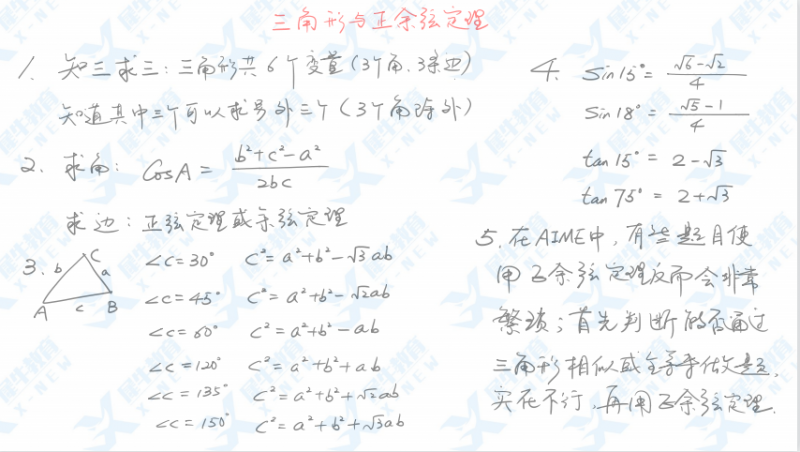 三角形与正余弦定理
1、知三求三：三角形共6个变量（3个角、3条边）
知道其中三个可以求另外三个（3个角除外）
2、求角：CosA = (b²+c²-a²)/(2bc)
求边：正弦定理或余弦定理
3、
C
b a
A c B
∠C=30° C²=a²+b²-√3ab
∠C=45° C²=a²+b²-√2ab
∠C=60° C²=a²+b²-ab
∠C=120° C²=a²+b²+ab
∠C=135° C²=a²+b²+√2ab
∠C=150° C²=a²+b²+√3ab
4、Sin15°=(√6-√2)/4
Sin18°=(√5-1)/4
tan15°=2-√3
tan75°=2+√3
5、在AIME中，有些题目使
用正余弦定理反而会非常
繁琐；首先判断能否通过
三角形相似或全等来做题，
实在不行，再用正余弦定理.
犀牛教育
X-NEW